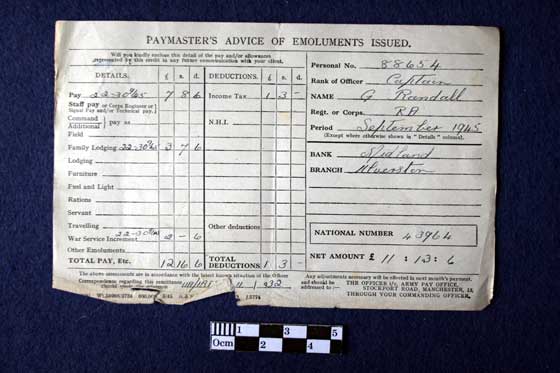 PAYMASTER'S ADVICE OF EMOLUMENTS ISSUED.
Will you kindly enclose this detail of the pay and/or allowances
represented by this credit in any future communication with your client.
DETAILS. £ s. d. DEDUCTIONS. £ s. d.
Pay 22-30/9/45 7 8 6 Income Tax 1 3 -
Staff pay or Corps Engineer or
Signal Pay and/or Technical pay.
Command
Additional pay as N.H.I.
Field
Family Lodging 22-30/9/45 3 7 6
Lodging
Furniture
Fuel and Light
Rations
Servant
Travelling 22-30/9/45 Other deductions
War Service Increment 2 - 6
Other Emoluments
TOTAL PAY, Etc. 12 16 6 TOTAL DEDUCTIONS 1 3 -
The above assessments are in accordance with the latest known situation of the Officer
Correspondence regarding this remittance
Personal No. 88654
Rank of Officer Captain
NAME G Randall
Regt. or Corps. RA
Period September 1945
(Except where otherwise shown in "Details" column).
BANK Midland
BRANCH Ulverston
NATIONAL NUMBER 43964
NET AMOUNT £ 11 : 13 : 6
Any adjustments necessary will be effected in next month's payment.
and should be addressed to :— THE OFFICER i/c, ARMY PAY OFFICE,
STOCKPORT ROAD, MANCHESTER, 13,
THROUGH YOUR COMMANDING OFFICER.
1 3 5
0cm 2 4